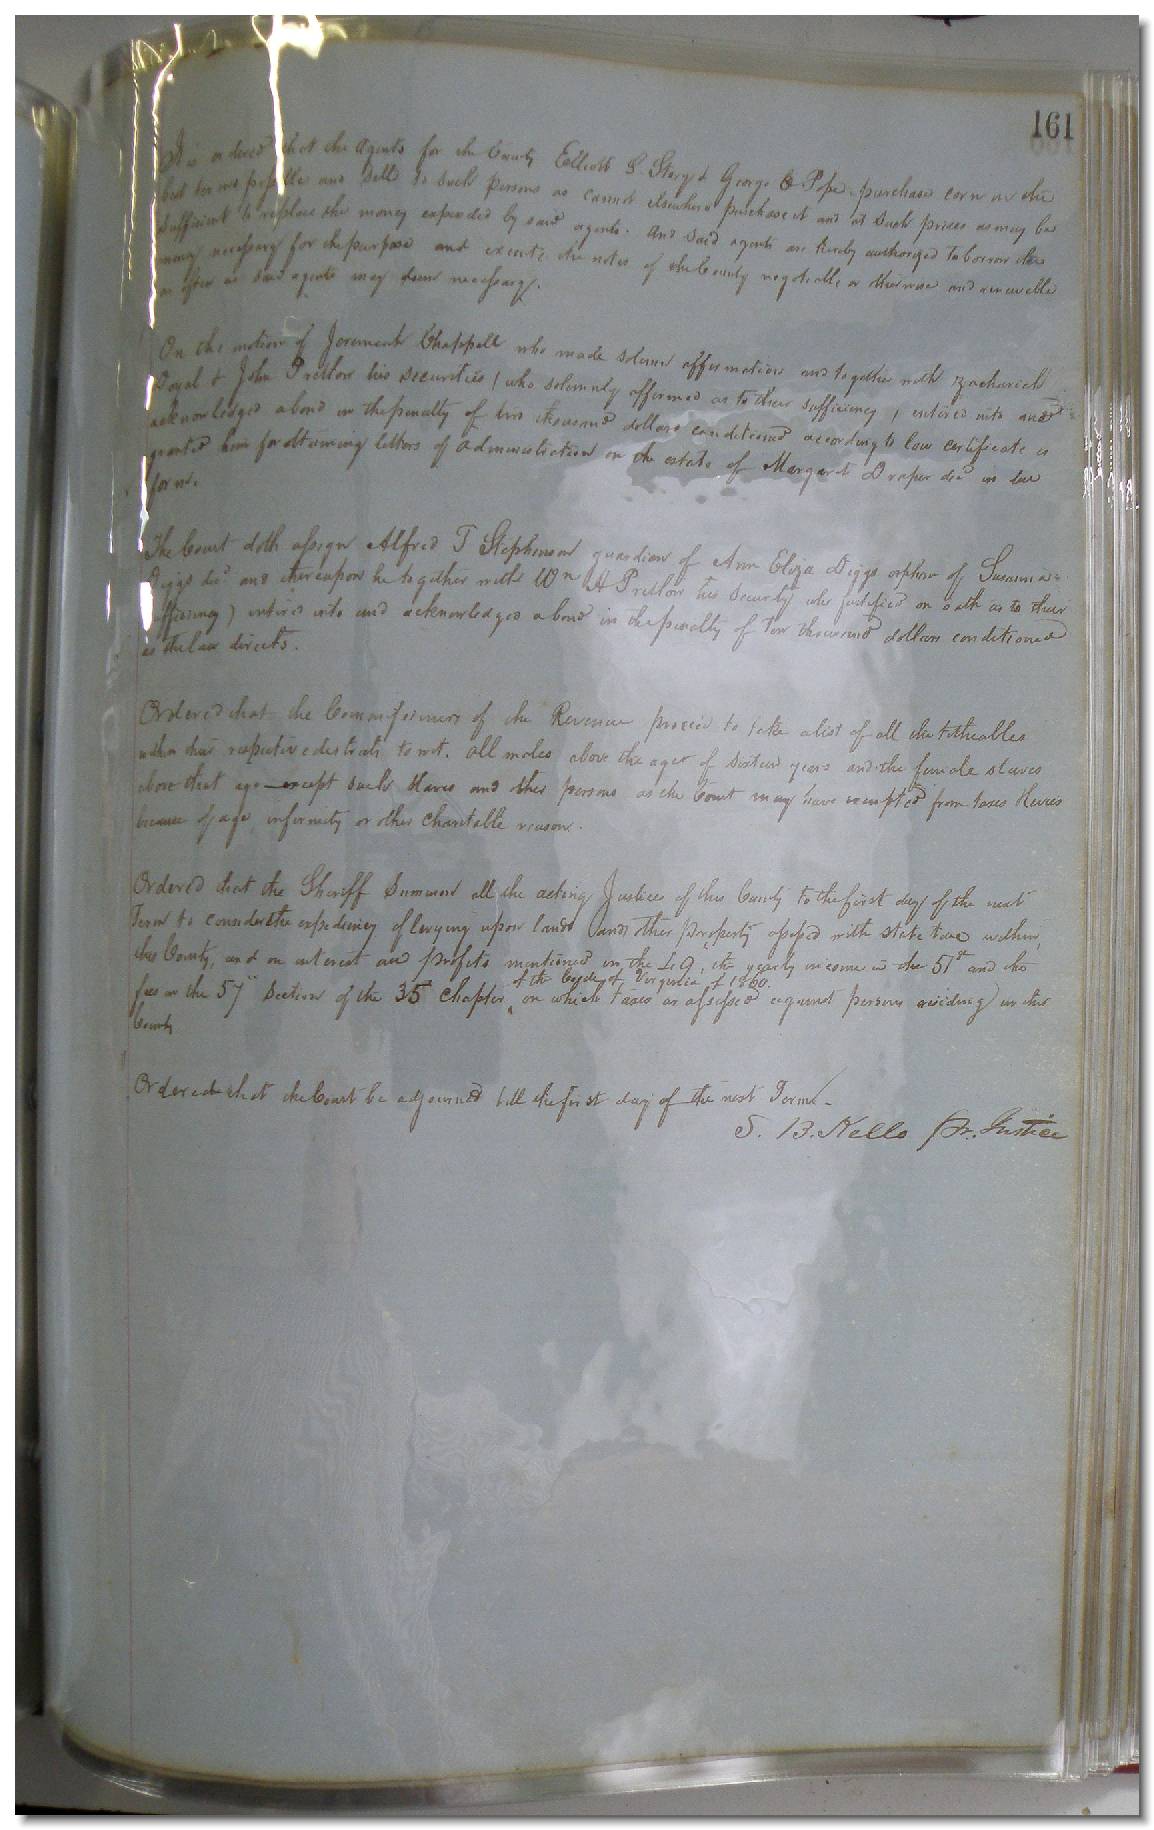 161
It is ordered that the Agents for the County Elliott L. Story & George B Pope purchase corn on the
best terms possible and sell to such persons as cannot elsewhere purchase it and at such prices as may be
sufficient to replace the money expended by said agents. And said agents are hereby authorized to borrow the
money necessary for the purpose and execute the notes of the County negotiable or otherwise and renewable
as often as said agents may deem necessary.
On the motion of Jeremiah Chappell who made solemn affirmation and together with Zachariah
Doyal & John Pretlow his securities (who solemnly affirmed as to their sufficiency) entered into and
acknowledged a bond in the penalty of two thousand dollars conditioned according to law certificate is
granted him for obtaining letters of administration on the estate of Margaret Draper decd in due
form.
The Court doth assign Alfred T Stephenson guardian of Ann Eliza Diggs orphan of Susanna
Diggs decd and thereupon he together with Wm A Pretlow his security who justified on oath as to their
sufficiency) entered into and acknowledged a bond in the penalty of ten thousand dollars conditioned
as the law directs.
Ordered that the Commissioners of the Revenue proceed to take a list of all the titheables
within their respective districts to wit. All males above the age of sixteen years and the female slaves
above that age except such slaves and other persons as the Court may have exempted from taxes
because of age infirmity or other charitable reason.
Ordered that the Sheriff summon all the acting Justices of this County to the first day of the next
Term to consider the expediency of levying upon lands and other property assessed with state taxes within
this County, and on interest and profits mentioned in the 49, the yearly income in the 51st and the
of the Code of Virginia of 1860.
fees in the 57th Section of the 35 Chapter ‸ on which taxes are assessed against persons residing in the
County
Ordered that the Court be adjourned till the first day of the next Term.
S. B. Kello Pr. Justice